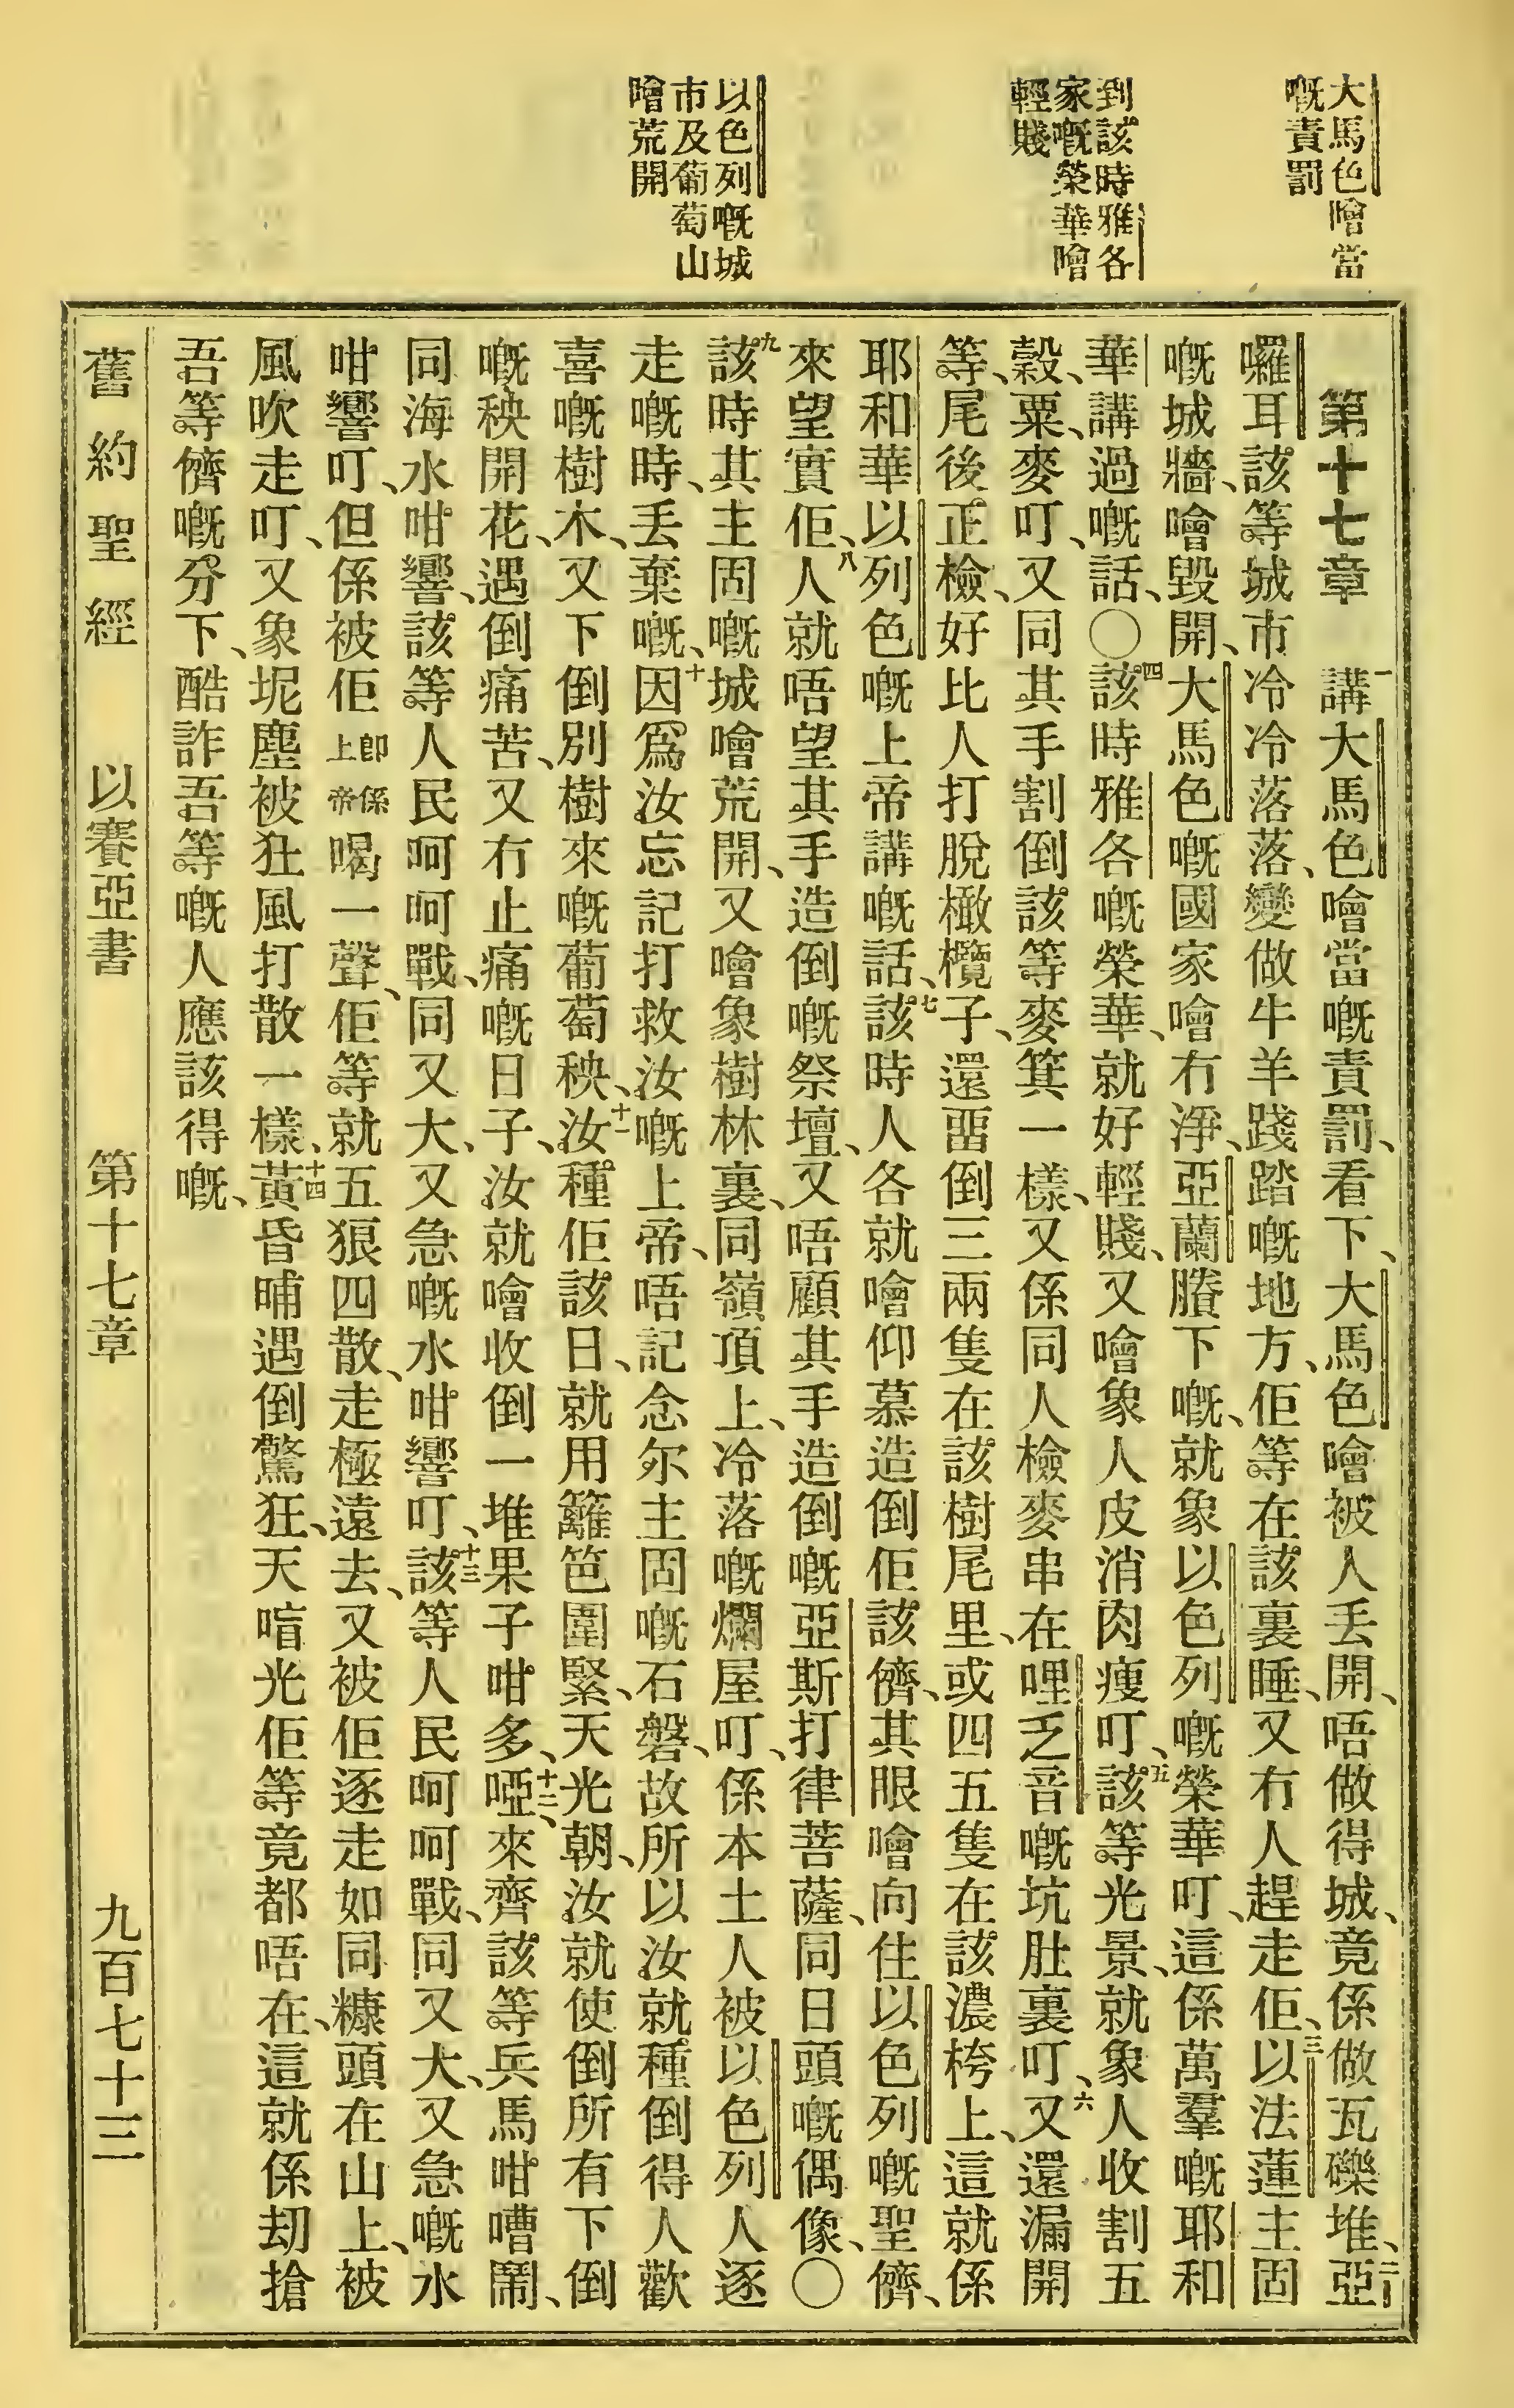 大馬色噲當
嘅責罰
到該時雅各
家嘅榮華噲
輕賤
以色列嘅城
市及葡萄山
噲荒開
第十七章　一講大馬色噲當嘅責罰、看下、大馬色噲被人丢開、唔做得城、竟係做瓦礫堆、二亞
囉耳該等城市冷冷落落、變做牛羊踐踏嘅地方、佢等在該裏睡、又冇人趕走佢、三以法蓮主固
嘅城牆、噲毀開、大馬色嘅國家噲冇淨、亞蘭賸下嘅、就象以色列嘅榮華叮、這係萬羣嘅耶和
華講過嘅話、〇四該時雅各嘅榮華、就好輕賤、又噲象人皮消肉瘦叮、五該等光景、就象人收割五
穀、粟、麥叮、又同其手割倒該等麥箕一樣、又係同人檢麥串在哩乏音嘅坑肚裏叮、六又還漏開
等、尾後正檢、好比人打脫橄欖子、還畱倒三兩隻在該樹尾里、或四五隻在該濃桍上、這就係
耶和華以列色嘅上帝講嘅話、七該時人各就噲仰慕造倒佢該儕、其眼噲向住以色列嘅聖儕、
來望實佢、八人就唔望其手造倒嘅祭壇、又唔顧其手造倒嘅亞斯打律菩薩、同日頭嘅偶像、〇
九該時其主固嘅城噲荒開、又噲象樹林裏、同嶺頂上、冷落嘅爛屋叮、係本土人被以色列人逐
走嘅時、丢棄嘅、十因爲汝忘記打救汝嘅上帝、唔記念尔主固嘅石磐、故所以汝就種倒得人歡
喜嘅樹木、又下倒別樹來嘅葡萄秧、十一汝種佢該日、就用籬笆圍緊、天光朝、汝就使倒所有下倒
嘅秧開花、遇倒痛苦、又冇止痛嘅日子、汝就噲收倒一堆果子咁多、十二啞、來齊該等兵馬咁嘈鬧、
同海水咁響、該等人民呵呵戰、同又大、又急嘅水咁響叮、十三該等人民呵呵戰、同又大、又急嘅水
咁響叮、但係被佢卽係上帝喝一聲、佢等就五狼四散、走極遠去、又被佢逐走如同糠頭在山上、被
風吹走叮、又象坭塵被狂風打散一樣、十四黃昏晡遇倒驚狂、天唁光佢等竟都唔在、這就係刧搶
吾等儕嘅分下、酷詐吾等嘅人應該得嘅、
舊約聖經　以賽亞書　第十七章　九百七十三